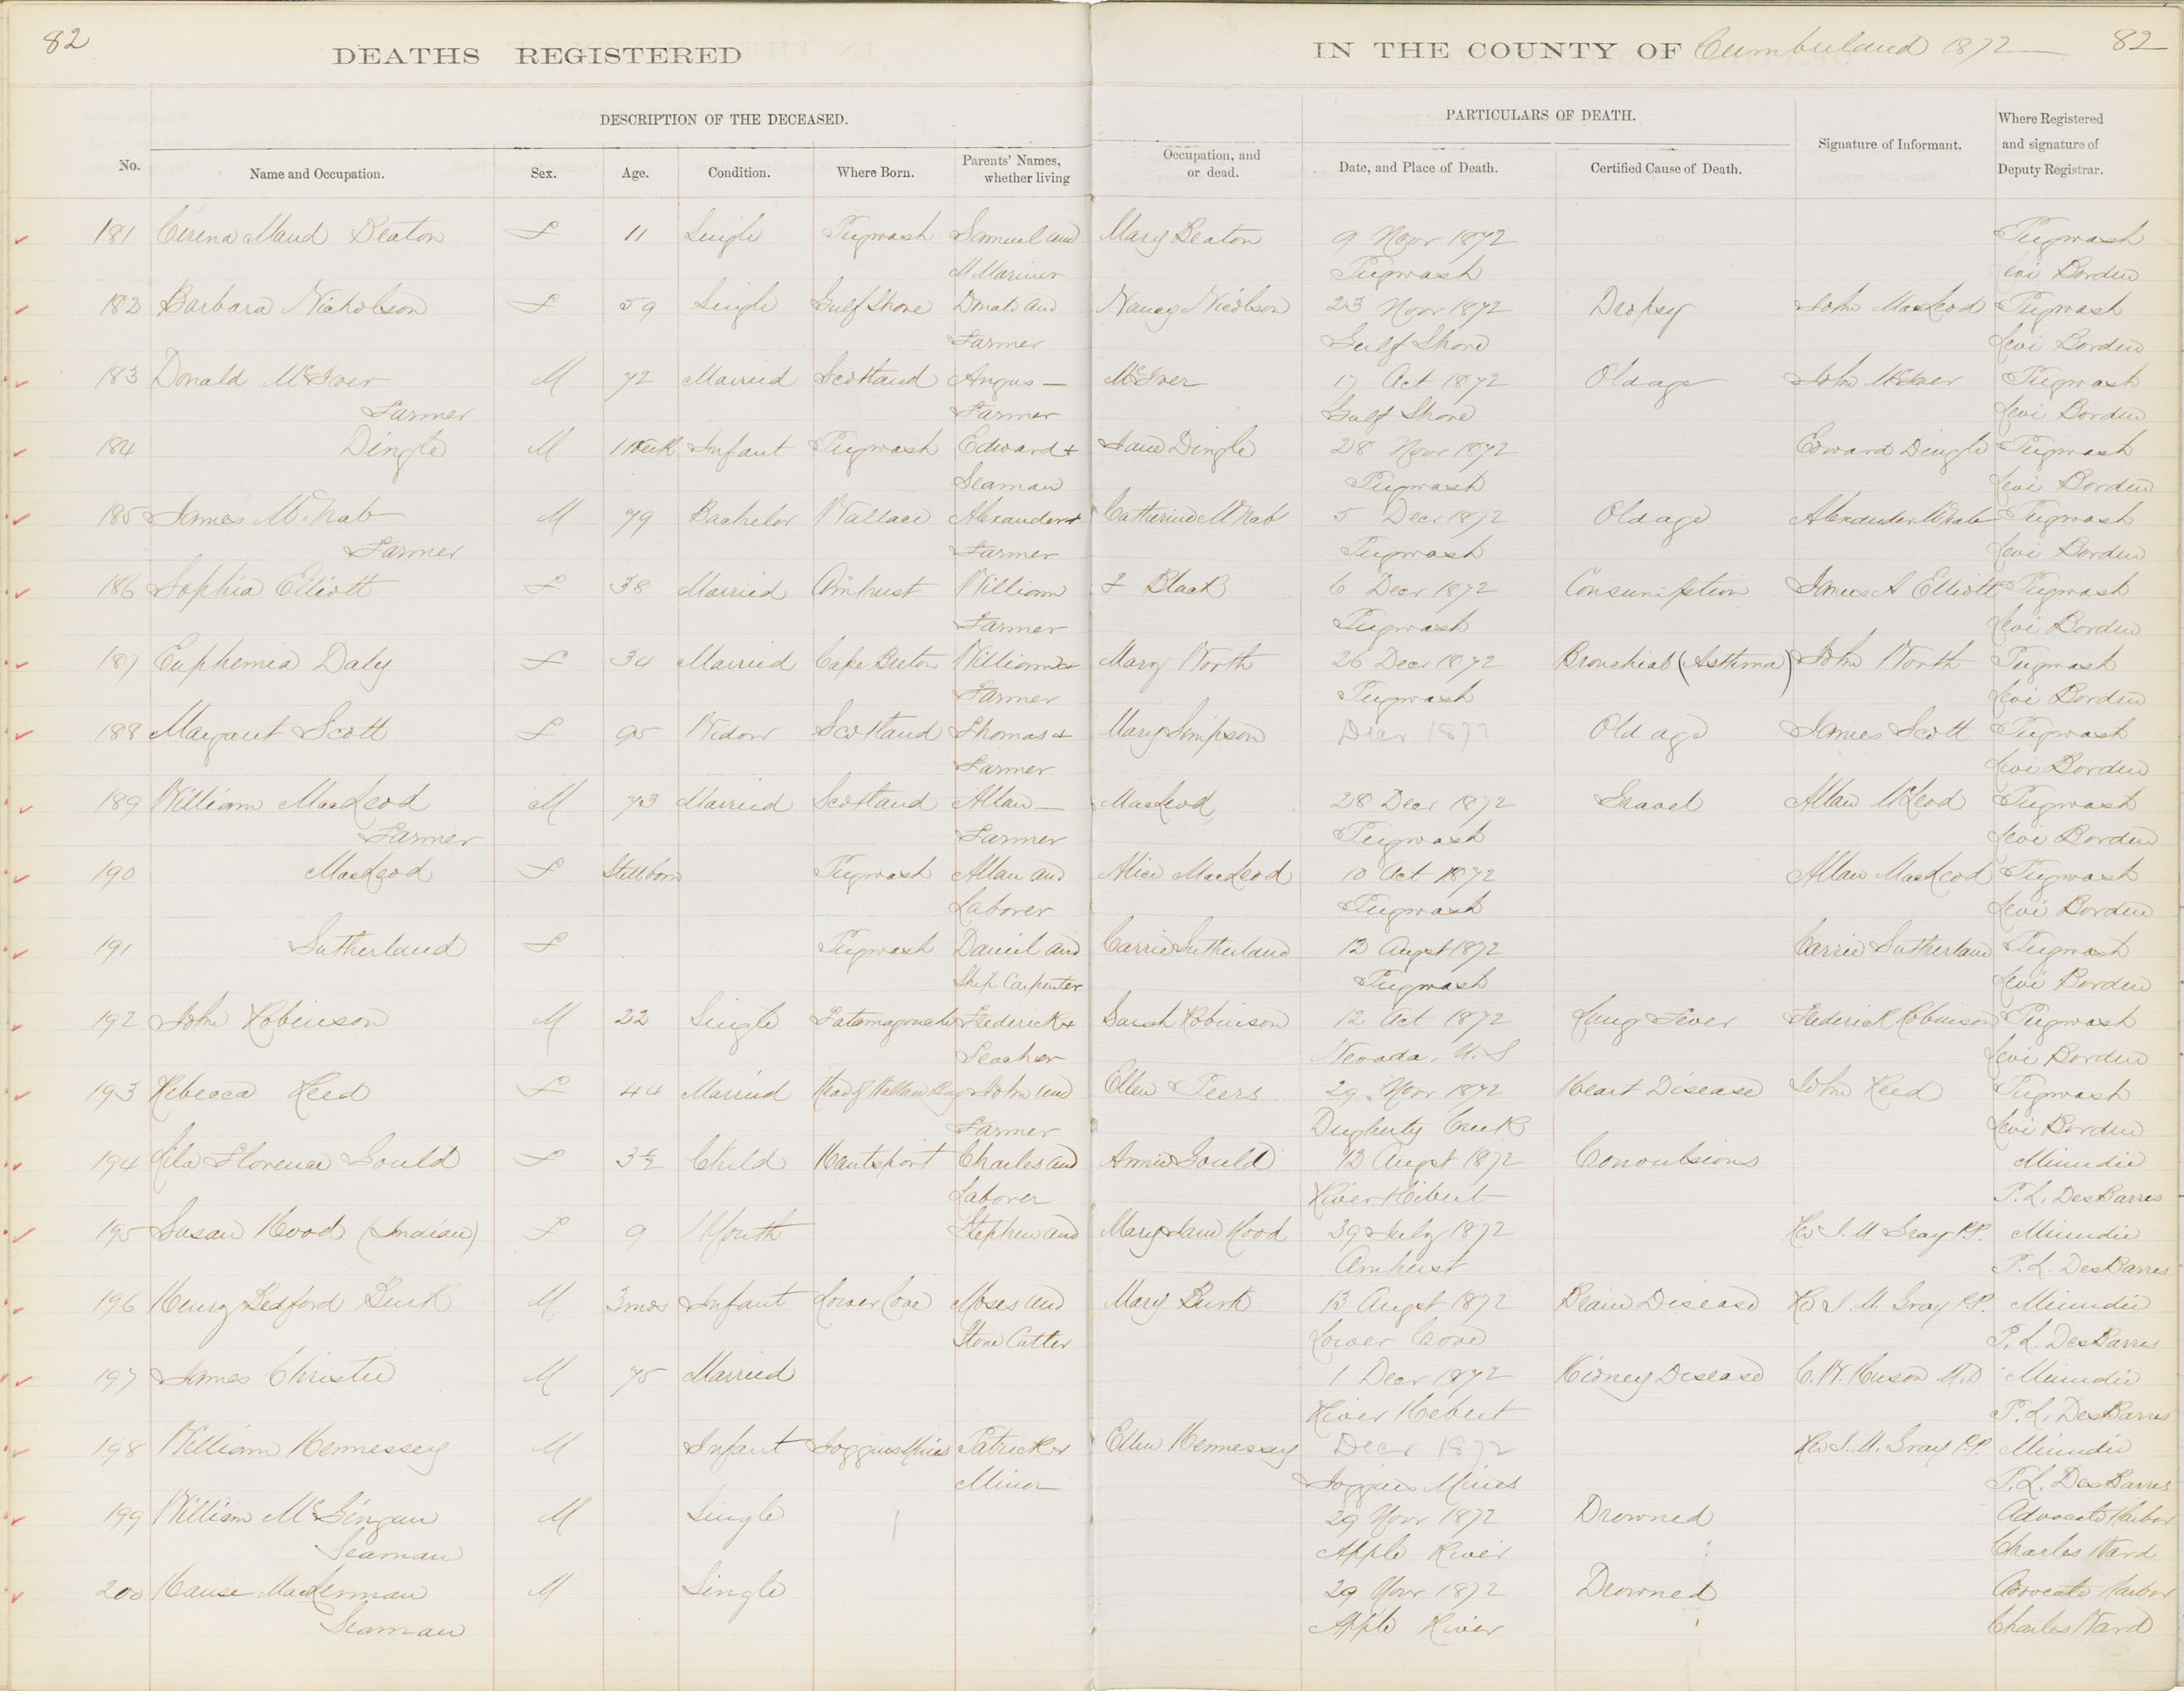 82
DEATHS REGISTERED
IN THE COUNTY OF Cumberland 1872
82
DESCRIPTION OF THE DECEASED.
PARTICULARS OF DEATH.
No.
Name and Occupation.
Sex.
Age.
Condition.
Where Born.
Parents' Names, whether living
Occupation, and or dead.
Date, and Place of Death.
Certified Cause of Death.
Signature of Informant.
Where Registered and signature of Deputy Registrar.
181 Maud Beaton F 11 Single Pugwash Samuel and Mary Beaton 9 Novr 1872 Pugwash
M Mariner Pugwash Levi Borden
182 Barbara Nicholson F 59 Single Gulf Shore Donald and Nancy Nicolson 23 Novr 1872 Dropsy John MacLeod Pugwash
Farmer Gulf Shore Levi Borden
183 Donald McIver M 72 Married Scotland Angus — McIver 17 Oct 1872 Old age John McIver Pugwash
Farmer Farmer Gulf Shore Levi Borden
184 Dingle M 1 Week Infant Pugwash Edward + Jane Dingle 28 Novr 1872 Edward Dingle Pugwash
Seaman Pugwash Levi Borden
185 James McNab M 79 Bachelor Wallace Alexander + Catherine McNab 5 Decr 1872 Old age Alexander McNab Pugwash
Farmer Farmer Pugwash Levi Borden
186 Sophia Elliott F 38 Married Amherst William & Black 6 Decr 1872 Consumption James A Elliott Pugwash
Farmer Pugwash Levi Borden
187 Euphemia Daly F 34 Married Cape Breton William + Mary North 26 Decr 1872 Bronchial (Asthma) John North Pugwash
Farmer Pugwash Levi Borden
188 Margaret Scott F 95 Widow Scotland Thomas + Mary Simpson Decr 1872 Old age James Scott Pugwash
Farmer Levi Borden
189 William MacLeod M 73 Married Scotland Allan — MacLeod 28 Decr 1872 Gravel Allan McLeod Pugwash
Farmer Farmer Pugwash Levi Borden
190 MacLeod F Stillborn Pugwash Allan and Alice MacLeod 10 Oct 1872 Allan MacLeod Pugwash
Laborer Pugwash Levi Borden
191 Sutherland F Pugwash Daniel and Carrie Sutherland 12 Augst 1872 Carrie Sutherland Pugwash
Ship Carpenter Pugwash Levi Borden
192 John Robinson M 22 Single Tatamagouche Frederick + Sarah Robinson 12 Oct 1872 Lung Fever Frederick Robinson Pugwash
Teacher Nevada, U.S Levi Borden
193 Rebecca Reed F 44 Married Head of Wallace Bay John and Ellen Peers 29 Novr 1872 Heart Disease John Reed Pugwash
Farmer Dugherty Creek Levi Borden
194 Lila Florence Gould F 3½ Child Hantsport Charles and Annie Gould 12 Augst 1872 Convulsions Minudie
Laborer River Hibert P. L. DesBarres
195 Susan Hood (Indian) F 9 Youth Stephen and Mary Jane Hood 29 July 1872 Gray P.P. Minudie
Amherst P. L. DesBarres
196 Henry Bedford Burk M 3 mos Infant Lower Cove Moses and Mary Burk 13 Augst 1872 Brain Disease Gray P.P. Minudie
Stone Cutter Lower Cove P. L. DesBarres
197 James Christie M 75 Married 1 Decr 1872 Kidney Disease M.D Minudie
River Hebert P. L. DesBarres
198 William Hennessey M Infant Joggins Mines Patrick + Ellen Hennessey Decr 1872 Gray P.P. Minudie
Miner Joggins Mines P. L. DesBarres
199 William M Single 29 Novr 1872 Drowned Advocate Harbor
Seaman Apple River Charles Ward
200 M Single 29 Novr 1872 Drowned Advocate Harbor
Seaman Apple River Charles Ward